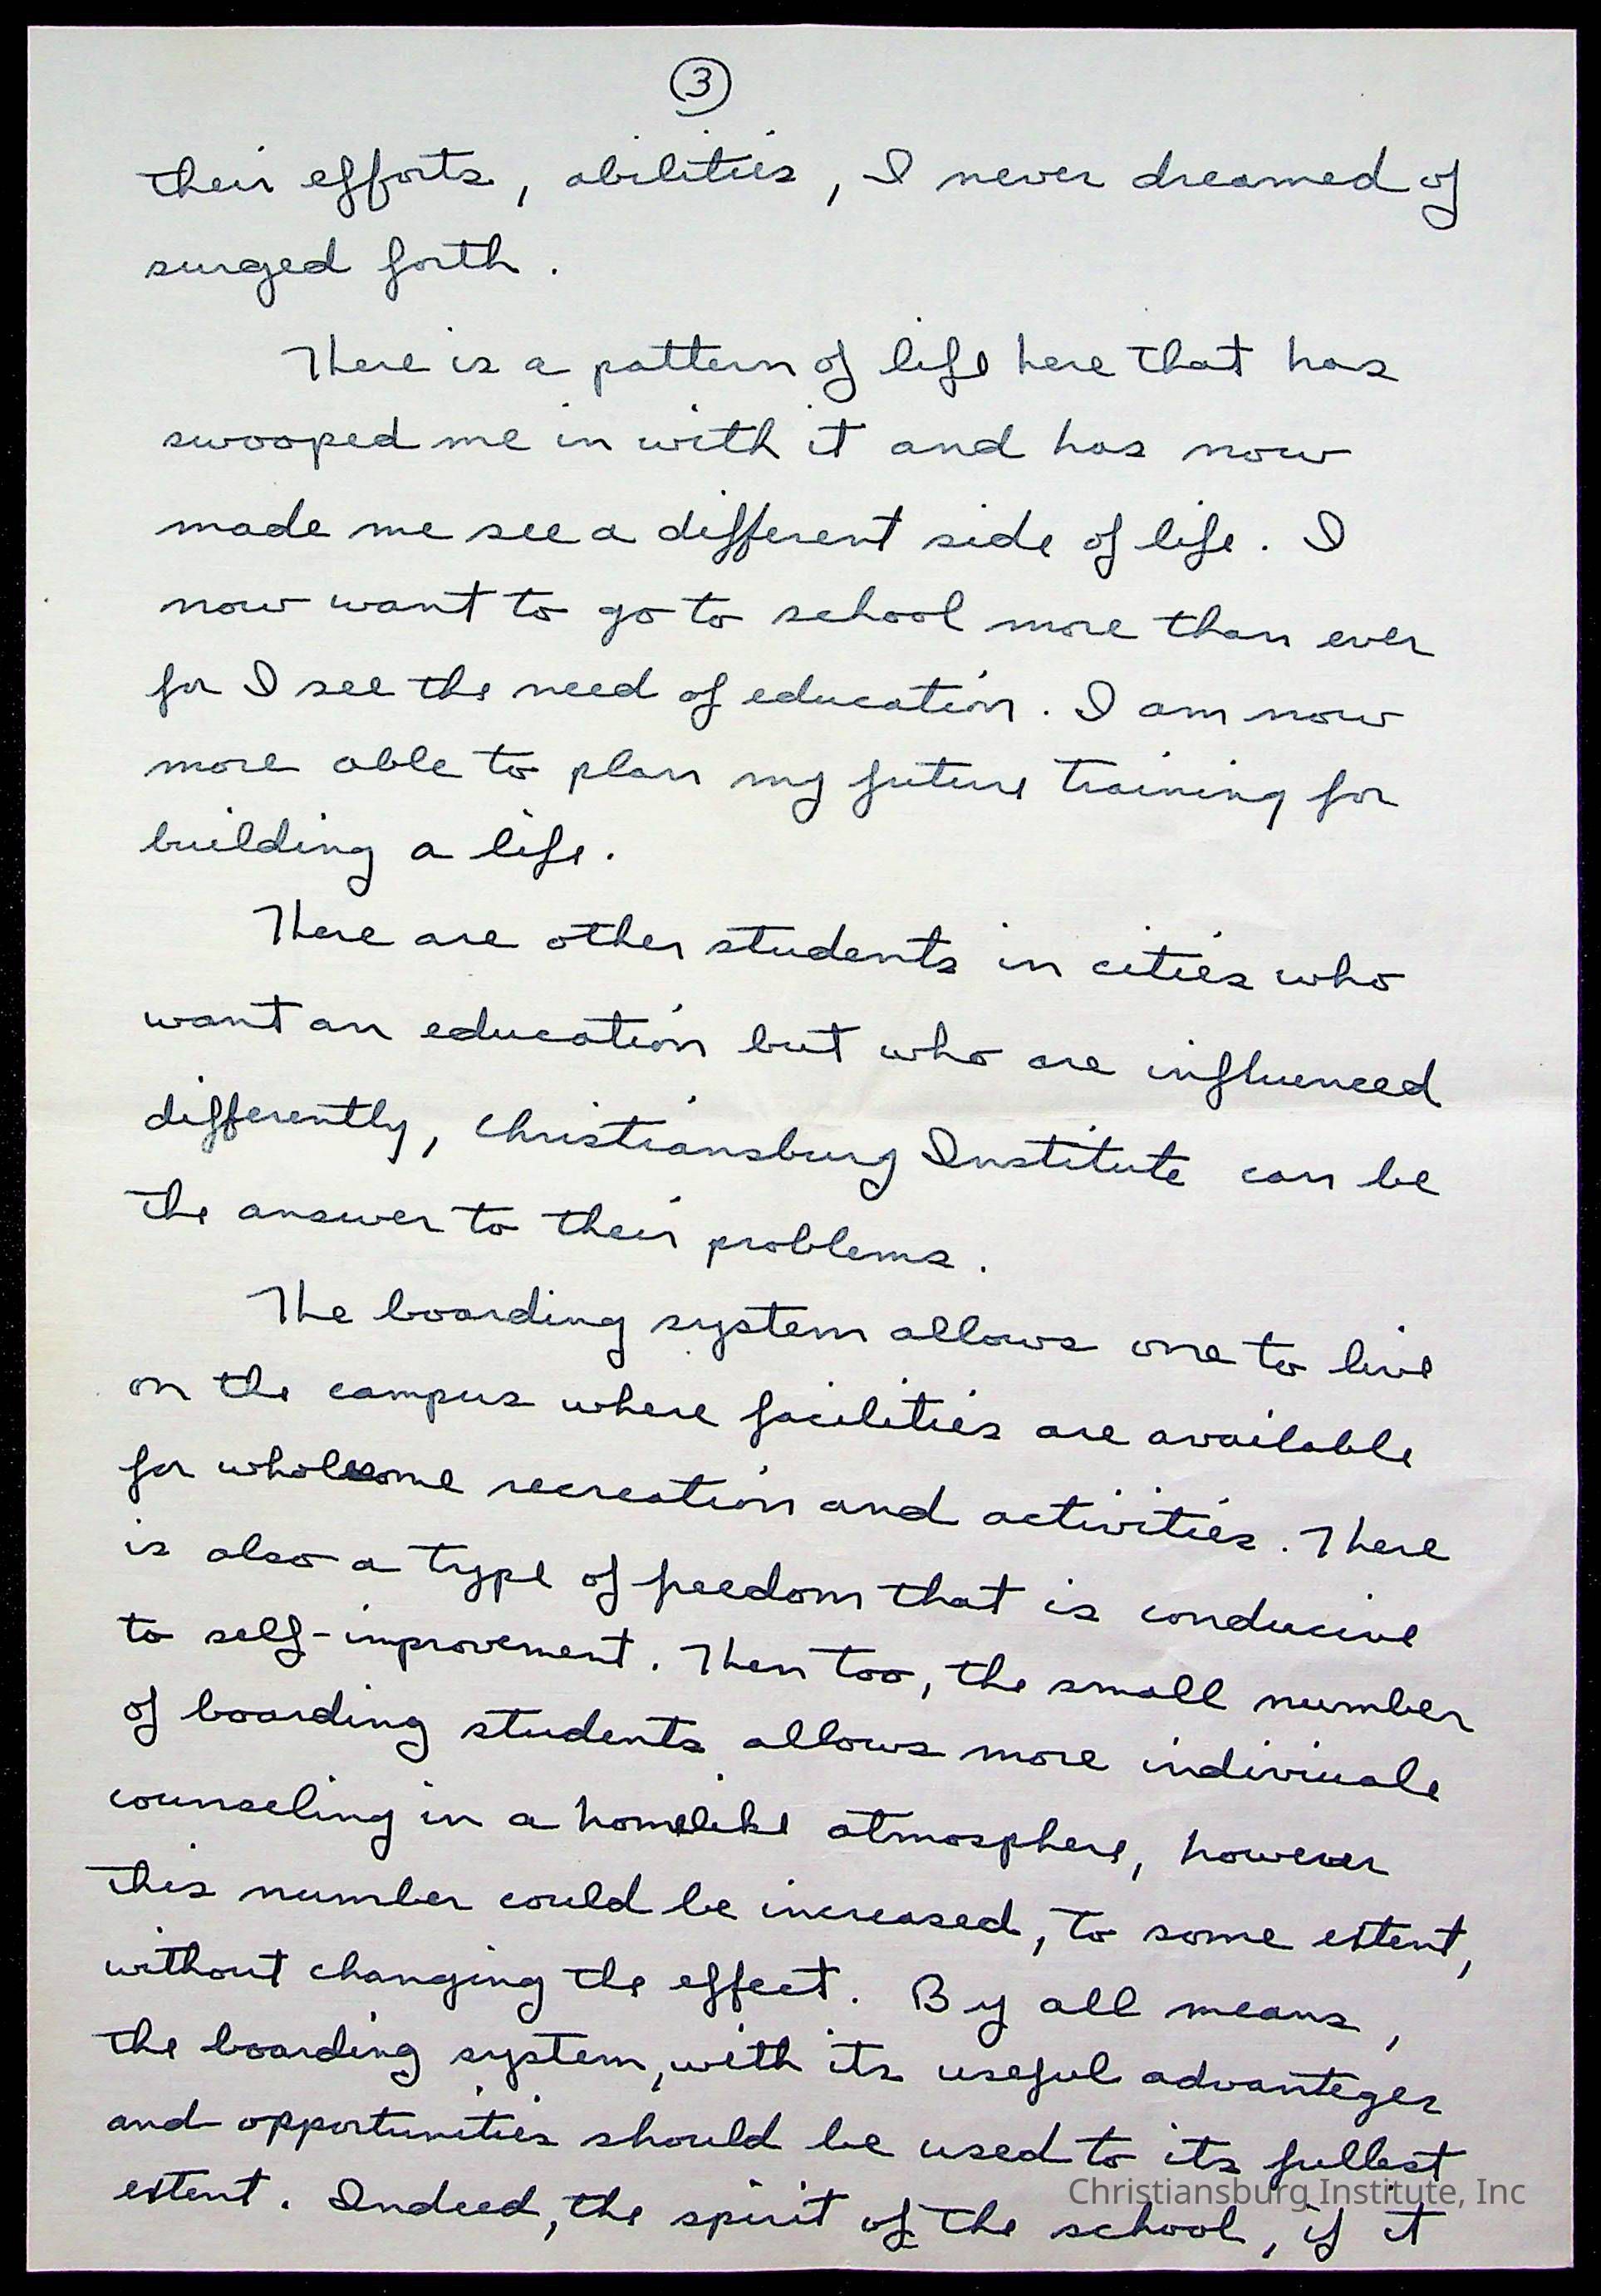 3
their efforts, abilities, I never dreamed of
surged forth.
There is a pattern of life here that has
swooped me in with it and has now
made me see a different side of life. I
now want to go to school more than ever
for I see the need of education. I am now
more able to plan my future training for
building a life.
There are other students in cities who
want an education but who are influenced
differently, Christiansburg Institute can be
the answer to their problems.
The boarding system allows one to live
on the campus where facilities are available
for wholesome recreation and activities. There
is also a type of freedom that is conducive
to self-improvement. Then too, the small number
of boarding students allows more indiviuale
counseling in a homelike atmosphere, however
this number could be increased, to some extent,
without changing the effect. By all means,
the boarding system, with its useful advanteges
and opportunities should be used to its fullest
extent. Indeed, the spirit of the school, if it
Christiansburg Institute, Inc